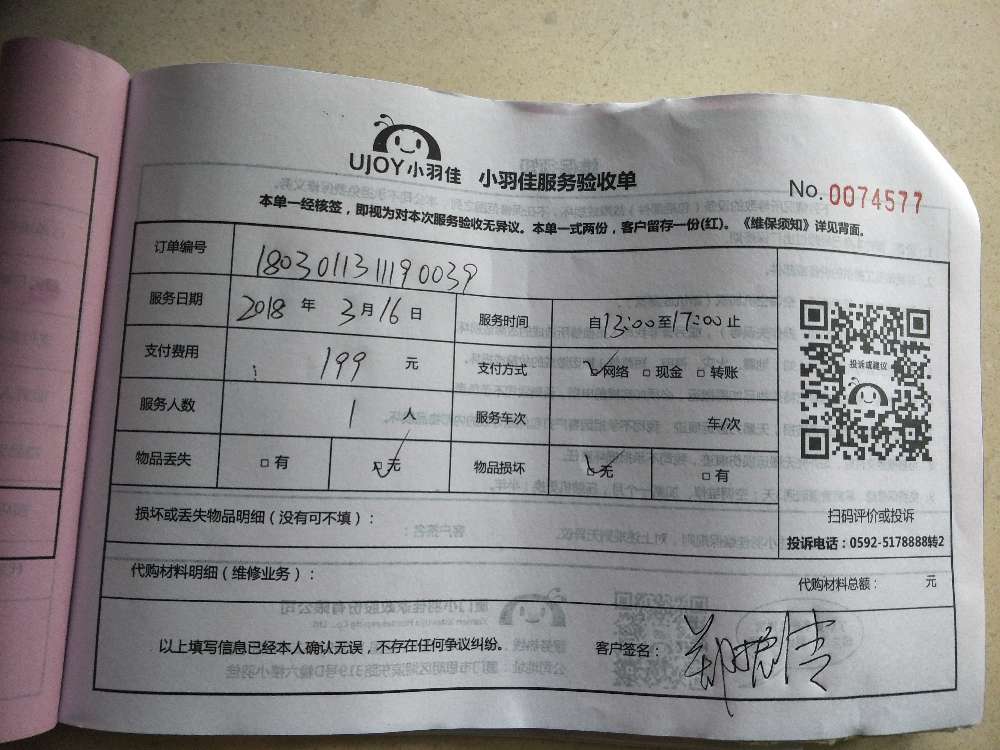 UJOY小羽佳 小羽佳服务验收单 No 0074577
本单一经核签，即视为对本次服务验收无异议。本单一式两份，客户留存一份(红)。《维保须知》详见背面。
订单编号 1803011311190039
服务日期 2018 年 3 月 16 日 服务时间 自13:00至17:00止
支付费用 199 元 支付方式 网络 □ 现金 □ 转账
服务人数 1 人 服务车次 车/次
物品丢失 □ 有 无 物品损坏 无 □ 有
投诉或建议
损坏或丢失物品明细（没有可不填）：
扫码评价或投诉
投诉电话：0592-5178888转2
代购材料明细（维修业务）：
代购材料总额： 元
以上填写信息已经本人确认无误，不存在任何争议纠纷。 客户签名：